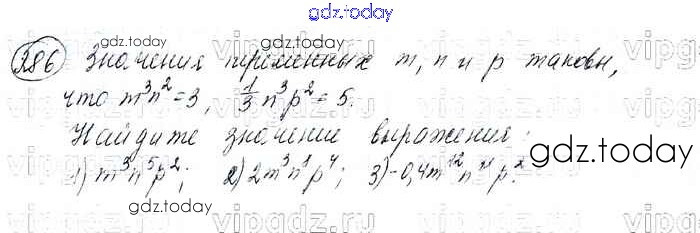 gdz.today
386 Значения переменных m, n и p таковы,
gdz.today
что m³n² = 3, 1/3 n³p² = 5.
Найдите значение выражения:
1) m³n⁵p²; 2) 2m³n⁸p⁴; 3) -0,4m¹²n¹¹p².
gdz.today
gdz.today
vipgdz.ru